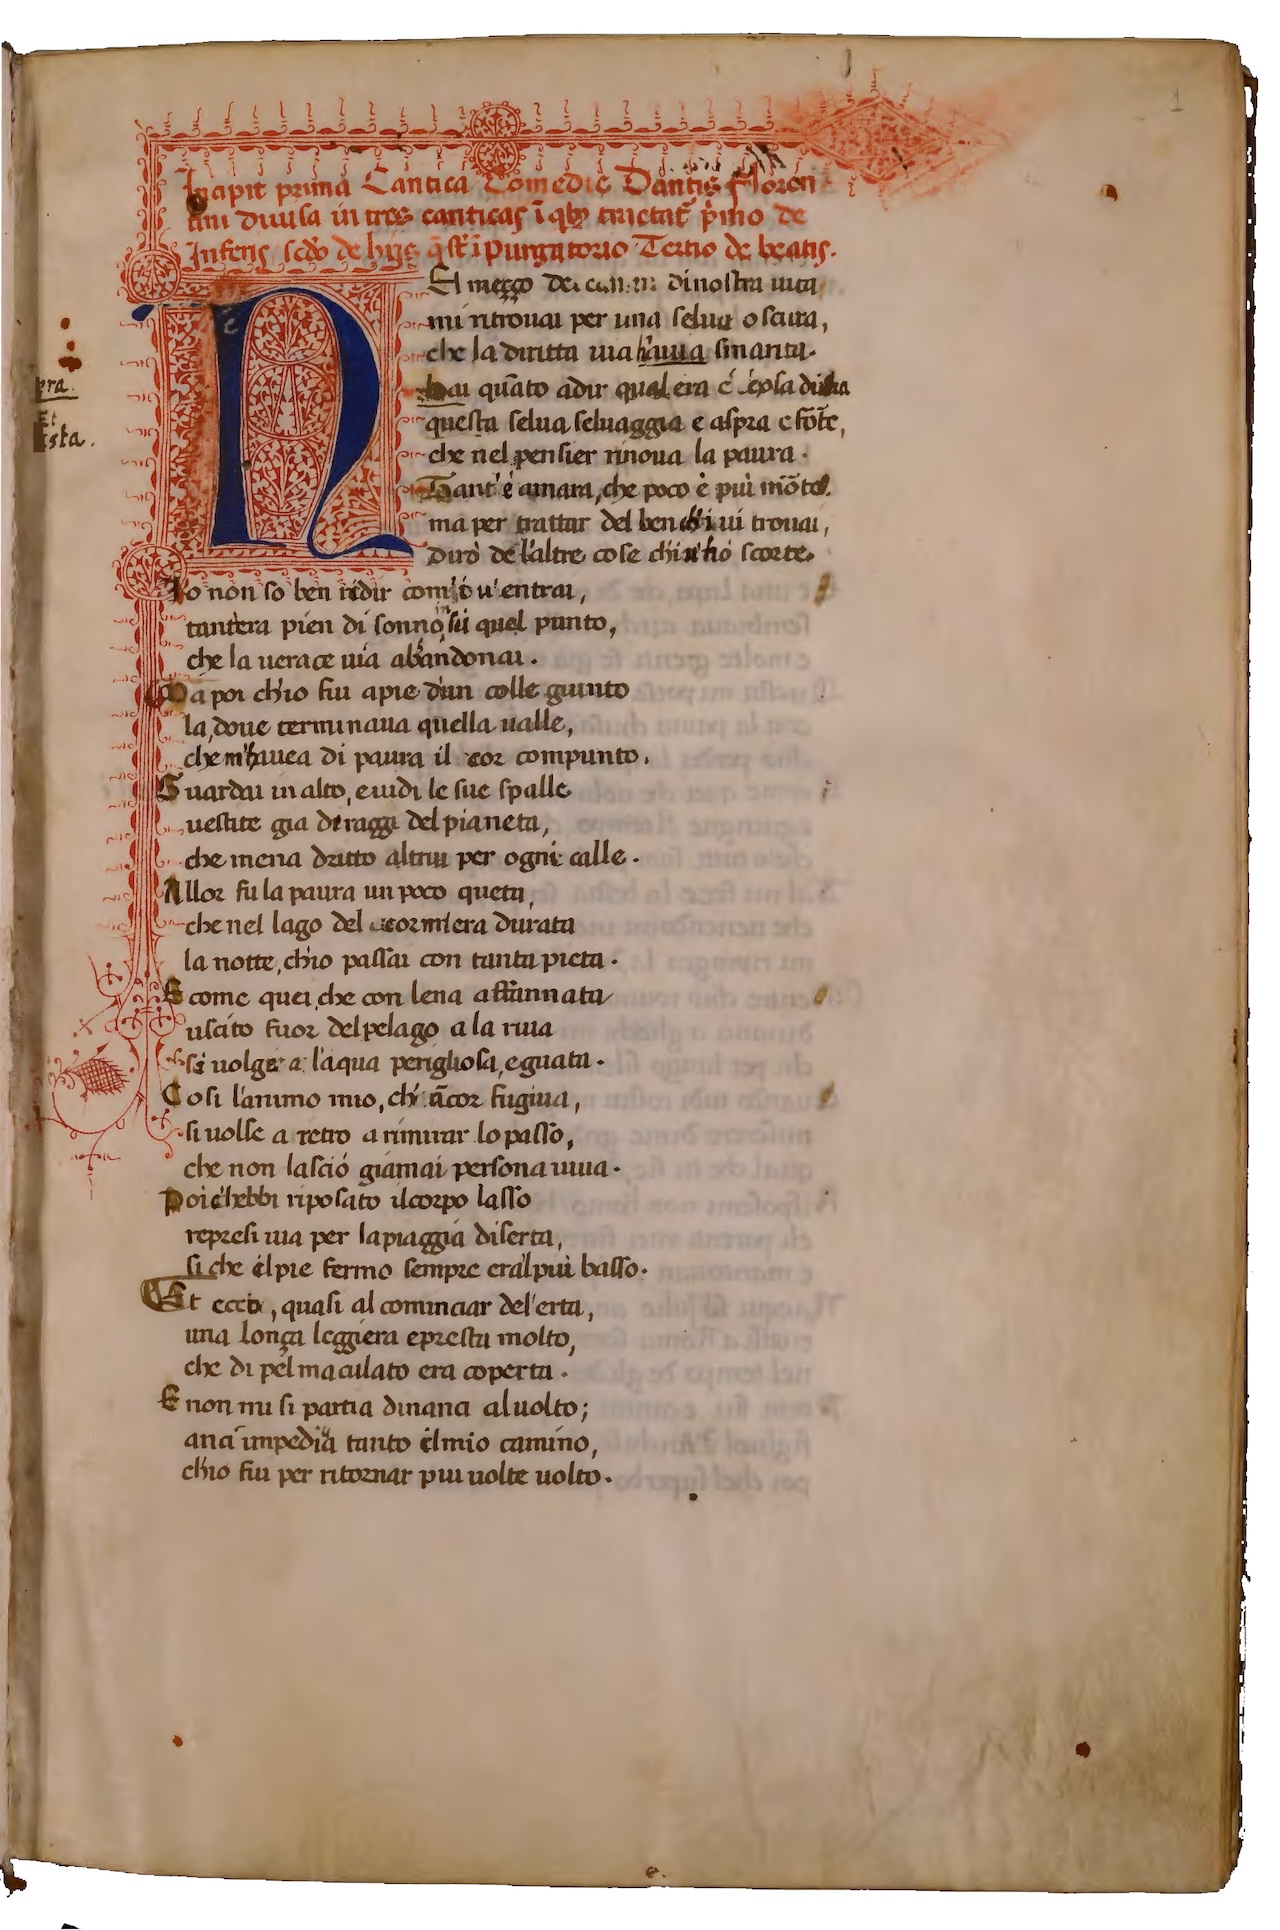 Incipit prima Cantica Comedie Dantis Floren
tini diuisa in tres canticas ĩ qbꝫ tractat᷑ p̃mo de
Inferis, scdo de hijs q̃ st̃ ĩ purgatorio Tertio de beatis.
NEl mezzo del di nostra uita
mi ritrouai per una selua oscura,
che la diritta uia h'auia smarita.
hai quãto a dir qual era é cosa dura
questa selua seluaggia e aspra e fõte,
che nel pensier rinoua la paura.
Tant'é amara, che poco è piú mõte.
ma per trattar del ben ch'i ui trouai,
dirò de l'altre cose ch'i u'hó scorte.
Io non so ben ridir com'i u'entrai,
tant'era pien di sonno in sú quel punto,
che la uerace uia abandonai.
Ma poi ch'io fui a pie d'un colle giunto
la, doue terminaua quella ualle,
che m'hauea di paura il cor compunto.
Guardai in alto, e uidi le sue spalle
uestite gia de raggi del pianeta,
che mena dritto altrui per ogni calle.
Allor fu la paura un poco queta,
che nel lago del cor m'era durata
la notte, ch'io passai con tanta pieta.
E come quei, che con lena affannata
uscito fuor del pelago a la riua
si uolge a l'aqua perigliosa, e guata.
Cosi l'animo mio, ch' ãcor fugiua,
si uolse a retro a rimirar lo passo,
che non lasció giamai persona uiua.
Poi ch'ebbi riposato il corpo lasso
represi uia per la piaggia diserta,
si che el pie fermo sempre era'l piú basso.
Et ecco, quasi al cominciar del'erta,
una lonça leggiera e presta molto,
che di pel maculato era coperta.
E non mi si partia dinanci al uolto;
anci impedia tanto el mio camino,
ch'io fui per ritornar piu uolte uolto.
pra.
Et
ista.
1